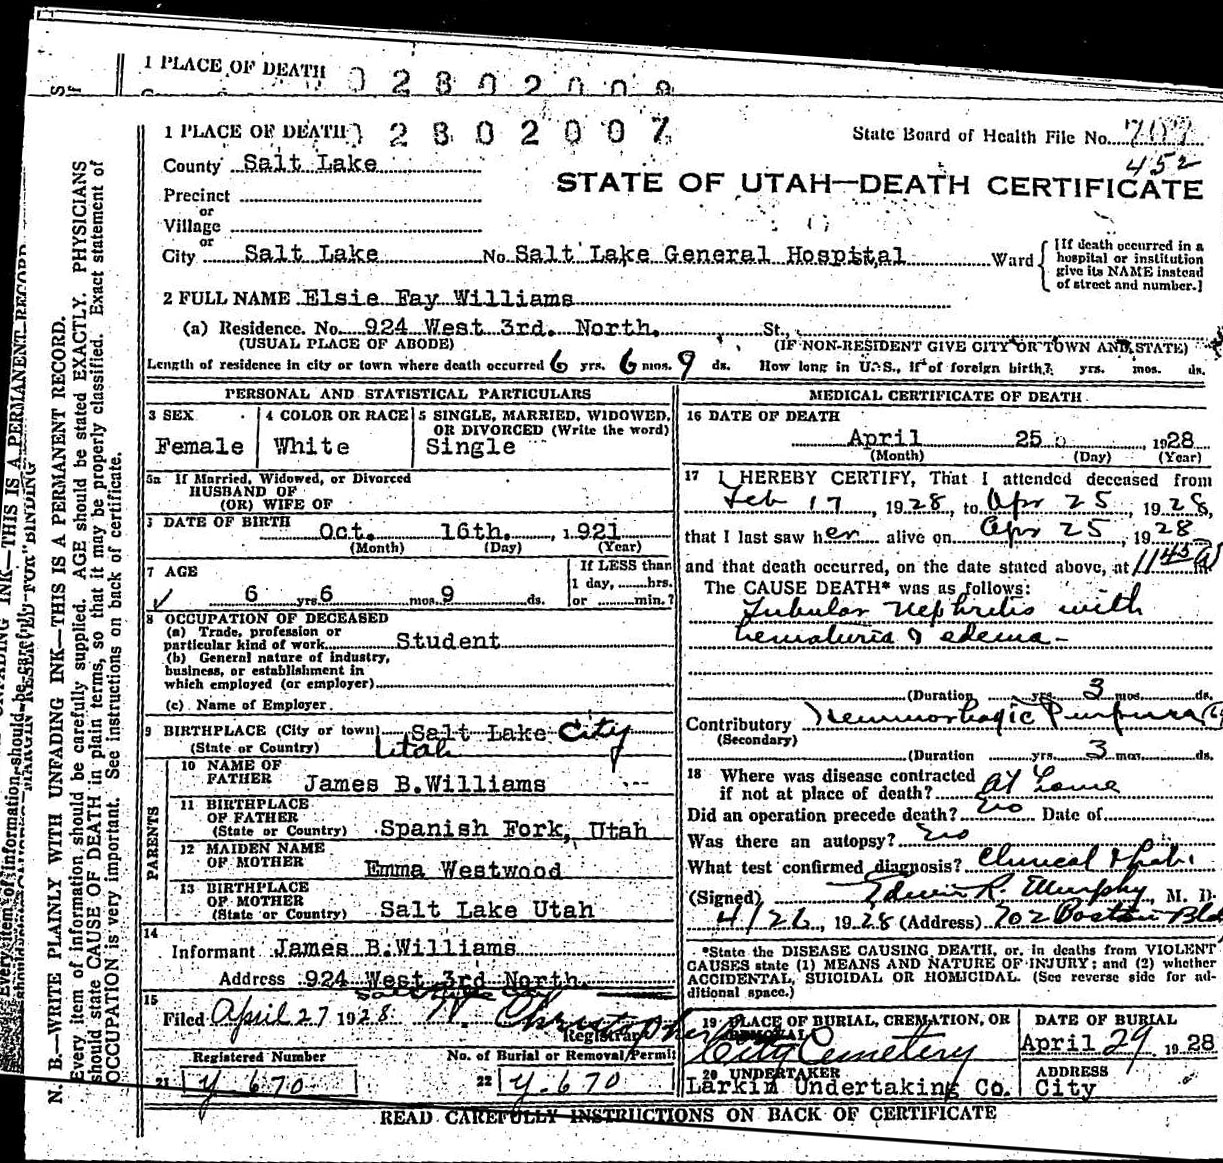 1 PLACE OF DEATH 0 2 8 0 2 0 0 9
1 PLACE OF DEATH 0 2 8 0 2 0 0 7
State Board of Health File No. 707
452
County Salt Lake
STATE OF UTAH—DEATH CERTIFICATE
Precinct
or
Village
or
City Salt Lake No. Salt Lake General Hospital Ward
[If death occurred in a
hospital or institution
give its NAME instead
of street and number.]
2 FULL NAME Elsie Fay Williams
(a) Residence. No. 924 West 3rd. North. St.,
(USUAL PLACE OF ABODE) (IF NON-RESIDENT GIVE CITY OR TOWN AND STATE)
Length of residence in city or town where death occurred 6 yrs. 6 mos. 9 ds. How long in U.S., if of foreign birth? yrs. mos. ds.
PERSONAL AND STATISTICAL PARTICULARS
3 SEX
Female
4 COLOR OR RACE
White
5 SINGLE, MARRIED, WIDOWED,
OR DIVORCED (Write the word)
Single
5a If Married, Widowed, or Divorced
HUSBAND OF
(OR) WIFE OF
DATE OF BIRTH
Oct. 16th. , 1921
(Month) (Day) (Year)
7 AGE
6 yrs. 6 mos. 9 ds.
If LESS than
1 day, hrs.
or min.?
8 OCCUPATION OF DECEASED
(a) Trade, profession or
particular kind of work Student
(b) General nature of industry,
business, or establishment in
which employed (or employer)
(c) Name of Employer
9 BIRTHPLACE (City or town) Salt Lake City
(State or Country) Utah
PARENTS
10 NAME OF
FATHER James B.Williams
11 BIRTHPLACE
OF FATHER
(State or Country) Spanish Fork, Utah
12 MAIDEN NAME
OF MOTHER Emma Westwood
13 BIRTHPLACE
OF MOTHER
(State or Country) Salt Lake Utah
14
Informant James B.Williams
Address 924 West 3rd North.
Salt Lake City
15
Filed April 27 1928 W. Christopher
Registrar
Registered Number
21 y 670
No. of Burial or Removal Permit
22 y-670
MEDICAL CERTIFICATE OF DEATH
16 DATE OF DEATH
April 25 1928
(Month) (Day) (Year)
17 I HEREBY CERTIFY, That I attended deceased from
Feb 17, 1928, to Apr 25, 1928,
that I last saw her alive on Apr 25, 1928
and that death occurred, on the date stated above, at 11 45 a m.
The CAUSE DEATH* was as follows:
Tubular Nephritis with
hematuria & edema-
(Duration yrs. 3 mos. ds.
Contributory Hemmorhagic Purpura
(Secondary)
(Duration yrs. 3 mos. ds.
18 Where was disease contracted
if not at place of death? at home
Did an operation precede death? no Date of
Was there an autopsy? no
What test confirmed diagnosis? Clinical & Lab.
(Signed) Edwin R. Murphy, M. D.
4/26, 1928 (Address) 702 Boston Bld
*State the DISEASE CAUSING DEATH, or, in deaths from VIOLENT
CAUSES state (1) MEANS AND NATURE OF INJURY; and (2) whether
ACCIDENTAL, SUICIDAL OR HOMICIDAL. (See reverse side for ad-
ditional space.)
19 PLACE OF BURIAL, CREMATION, OR
REMOVAL
City Cemetery
DATE OF BURIAL
April 29 1928
20 UNDERTAKER
Larkin Undertaking Co.
ADDRESS
City
READ CAREFULLY INSTRUCTIONS ON BACK OF CERTIFICATE
N. B.—WRITE PLAINLY WITH UNFADING INK—THIS IS A PERMANENT RECORD.
Every item of information should be carefully supplied. AGE should be stated EXACTLY. PHYSICIANS
should state CAUSE OF DEATH in plain terms, so that it may be properly classified. Exact statement of
OCCUPATION is very important. See instructions on back of certificate.